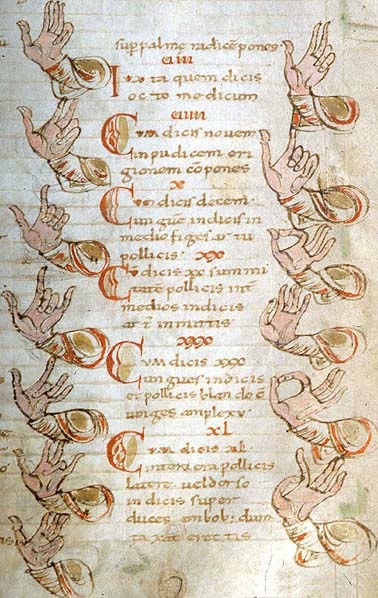 sup palme radicē pones
uiii
Iuxta quem dicis
octo medicum
uiiii
Cum dicis nouem
inpudicem eri
gionem cōpones
x
Cum dicis decem
ungūe indicis in
medio figes ar tu
pollicis· xx
Cū dicis xx summi
tate pollicis int
medios indicis
art inmittis
xxx
Cum dicis xxx
ungues indicis
et pollicis blando
iunges amplexu
xl
Cum dicis xl
interiora pollicis
latere uel dorso
indicis super
duces ambob; dum
taxat erectis